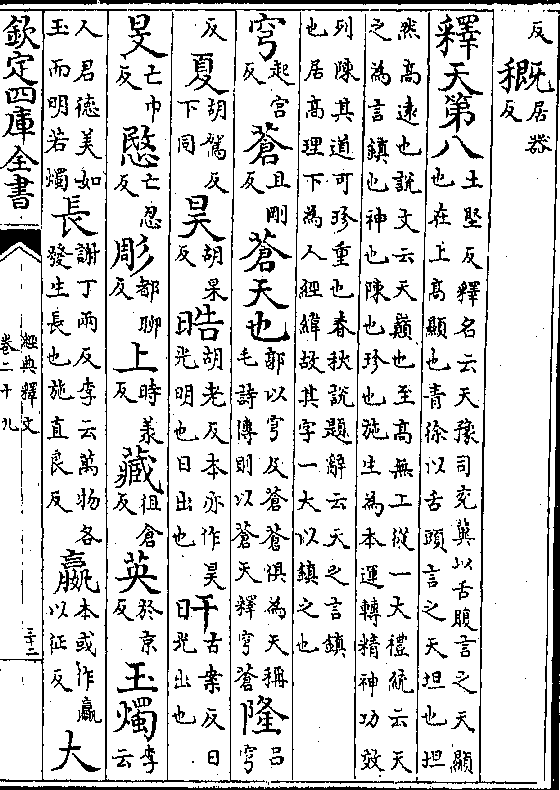 反穊居器反
釋天第八土堅反釋名云天豫司兖冀以舌腹言之天顯也在上高顯也青徐以舌頭言之天坦也坦
然高遠也說文云天巔也至高無上從一大禮統云天之為言鎮也神也陳也珍也施生為本運轉精神功效
列陳其道可珍重也春秋說題辭云天之言鎮也居高理下為人經緯故其字一大以鎮之也
穹起宫反蒼且剛反蒼天也郭以穹及蒼蒼俱為天稱毛詩傳則以蒼天釋穹蒼隆吕穹
反夏胡駕反下同昊胡杲反晧胡老反本亦作昊光明也日出也干古案反日日光出也
旻亡巾反愍亡忍反彫都聊反上時羕反藏徂倉反英於京反玉燭李云
人君德美如玉而明若燭長謝丁兩反李云萬物各發生長也施直良反嬴本或作贏以征反大
欽定四庫全書
經典釋文
卷二十九
三十二